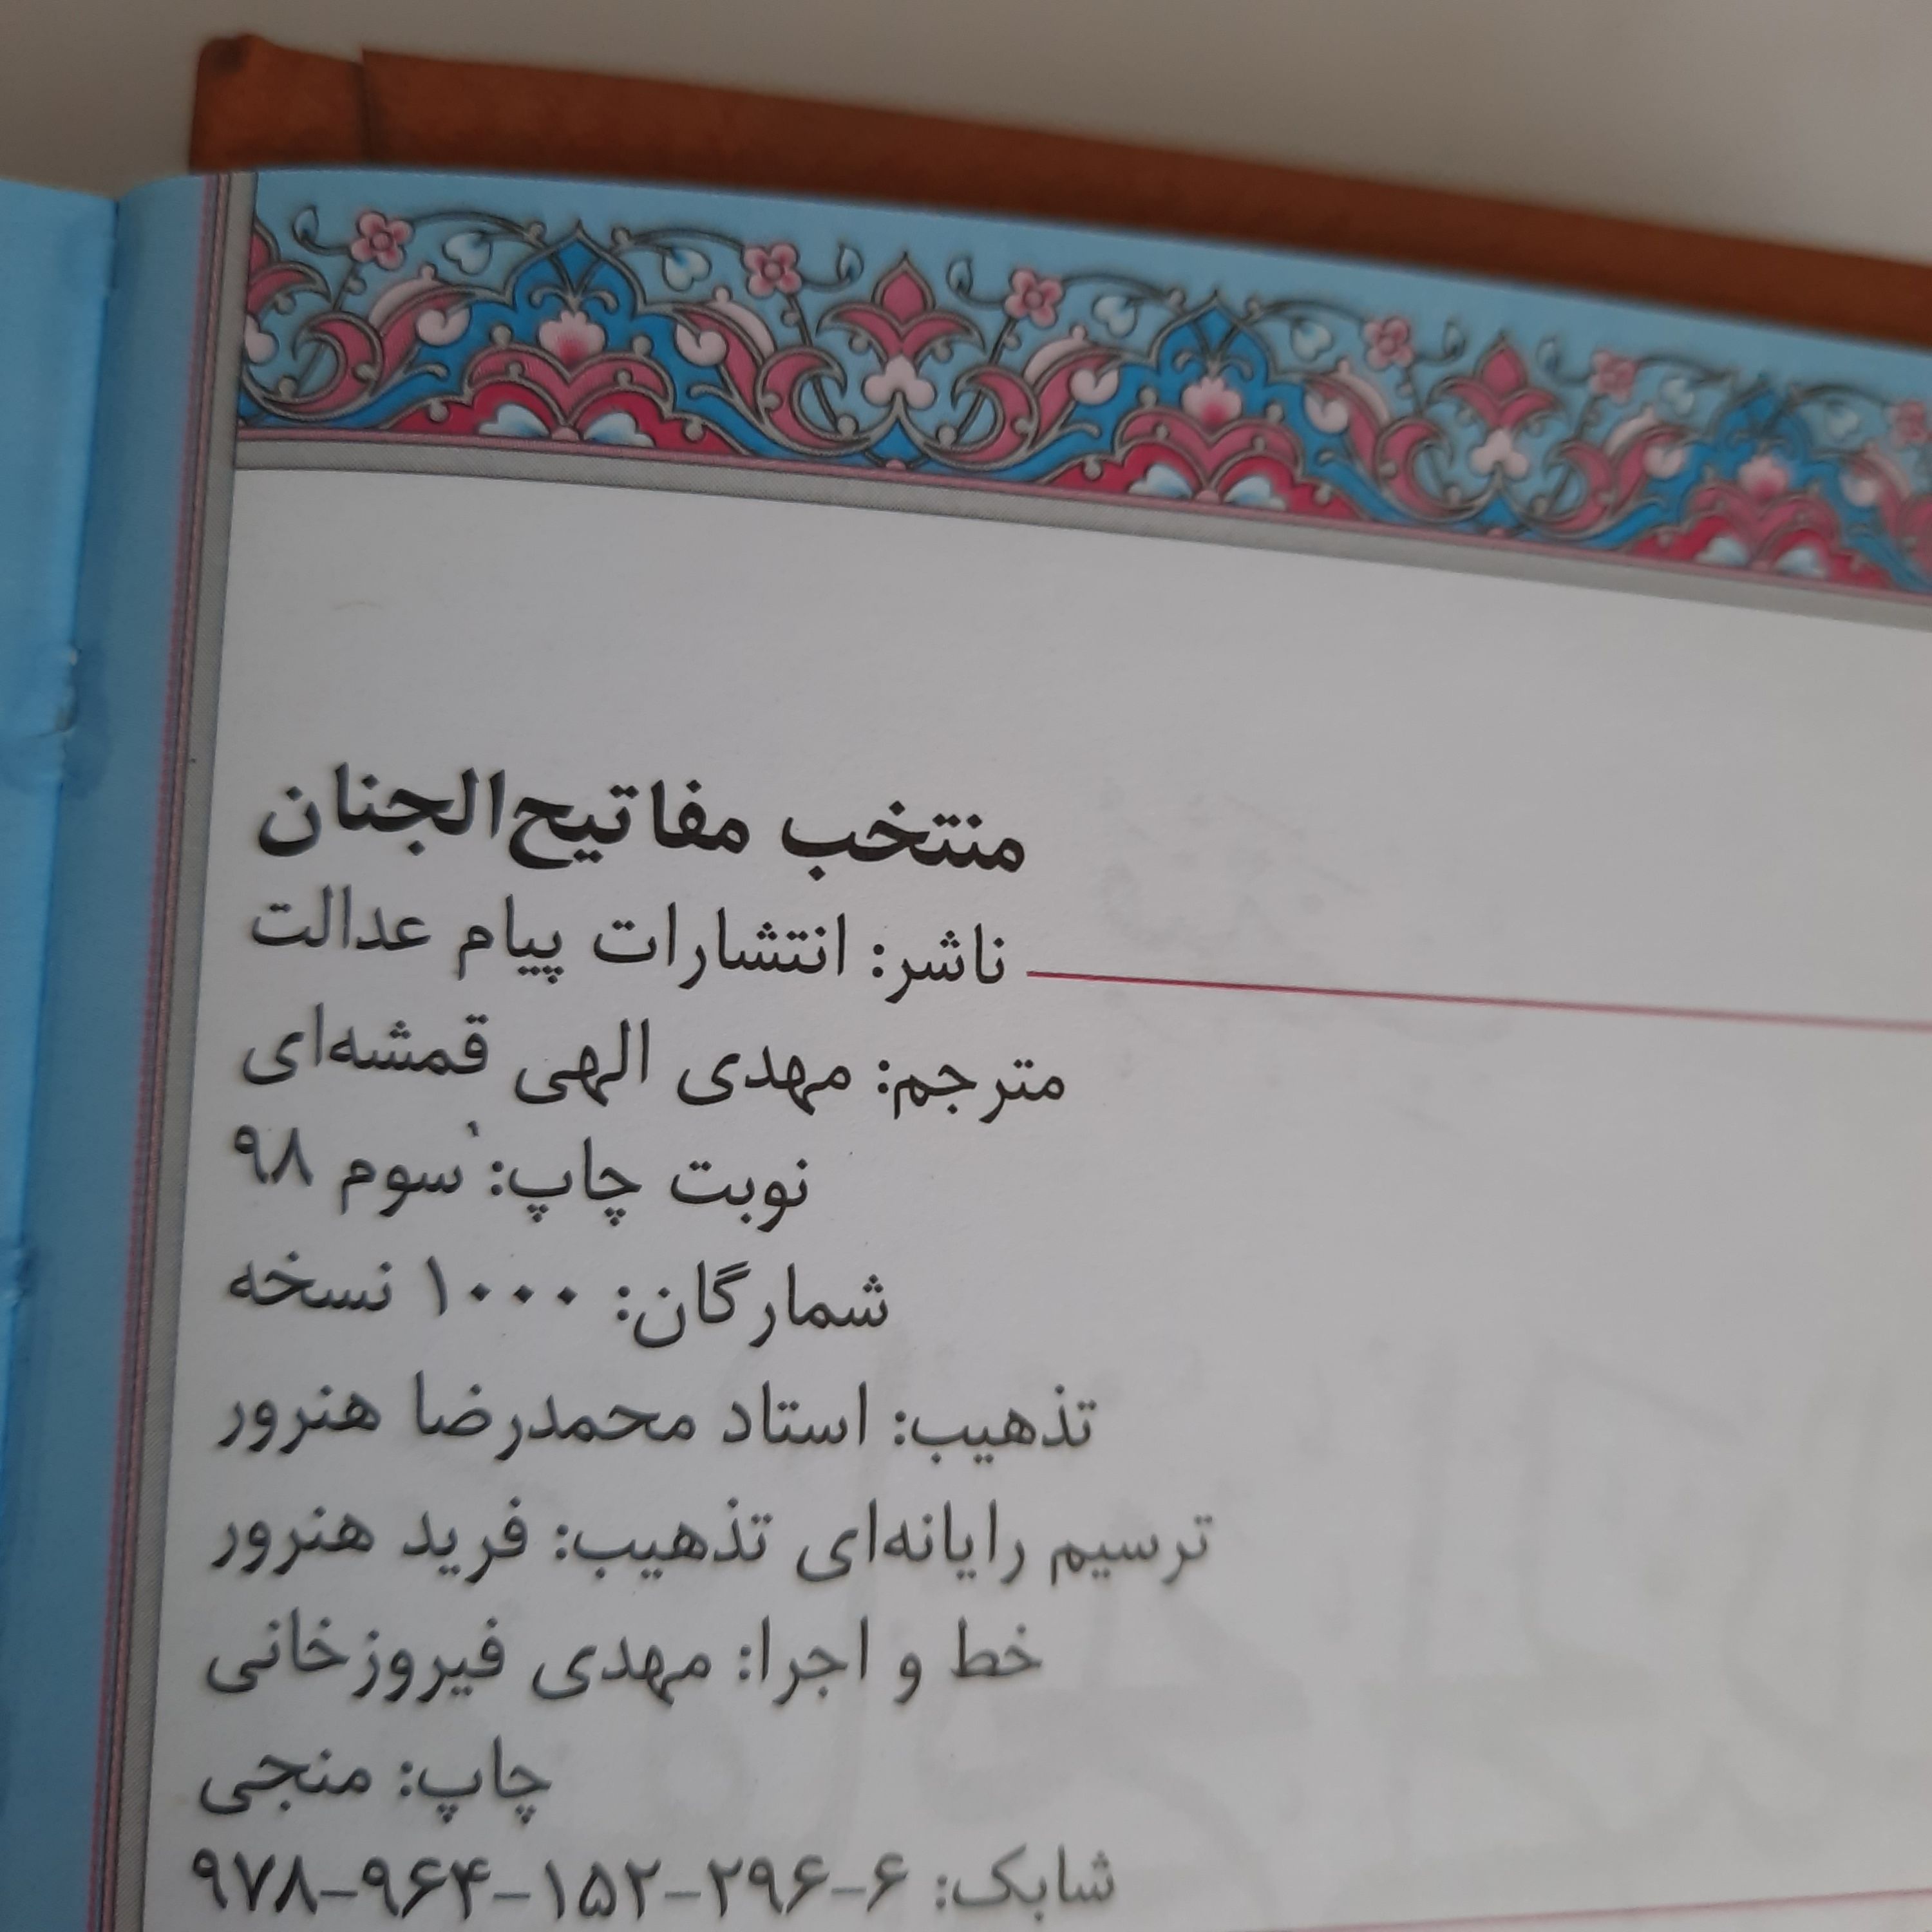 منتخب مفاتیح‌الجنان
ناشر: انتشارات پیام عدالت
مترجم: مهدی الهی قمشه‌ای
نوبت چاپ: سوم ۹۸
شمارگان: ۱۰۰۰ نسخه
تذهیب: استاد محمدرضا هنرور
ترسیم رایانه‌ای تذهیب: فرید هنرور
خط و اجرا: مهدی فیروزخانی
چاپ: منجی
شابک: ۶-۲۹۶-۱۵۲-۹۶۴-۹۷۸